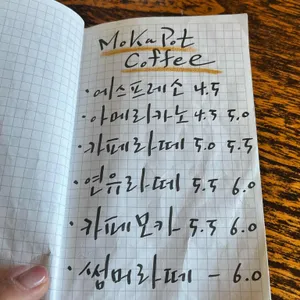 Moka Pot
Coffee
· 에스프레소 4.5
· 아메리카노 4.5 5.0
· 카페라떼 5.0 5.5
· 연유라떼 5.5 6.0
· 카페모카 5.5 6.0
· 썸머라떼 - 6.0